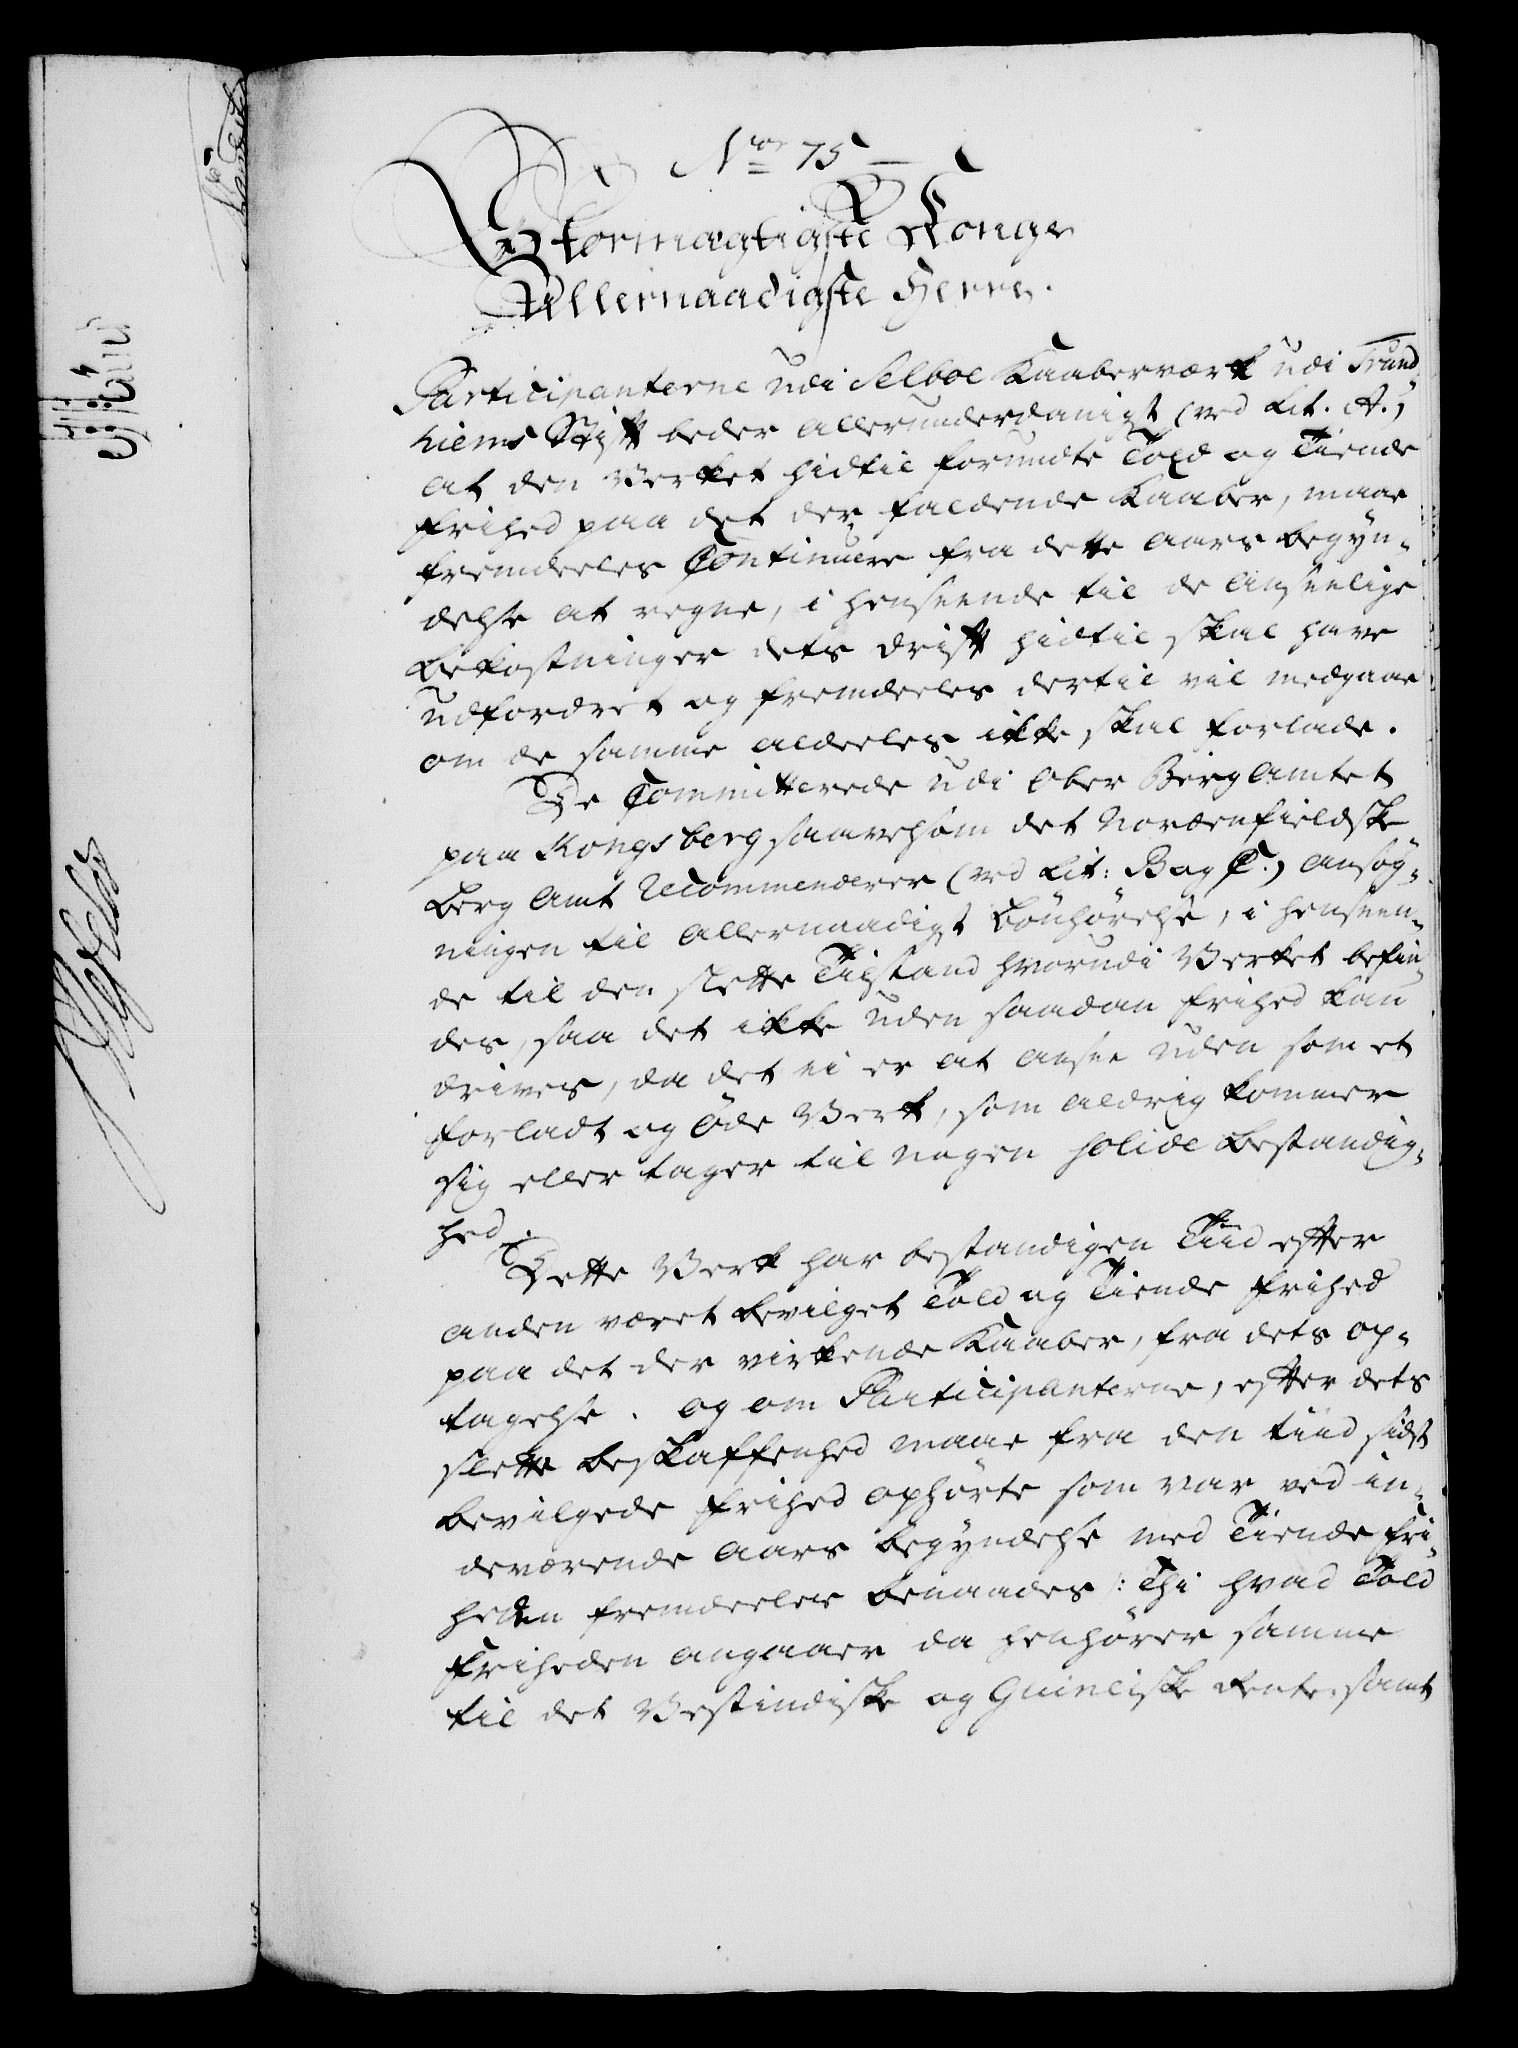 Nro 75
Stormægtigste Konge
Allernaadigste Herre.
Participanterne udi Selboe Kaaberværk udi Trund
hiems Stift beder allerunderdanigst (ved Lit. A.)
at den Verket hidtil forundte Told og Tiende
frihed paa det der faldende Kaaber, maae
fremdeeles Continuere fra dette aars begyn-
delse at regne, i henseende til de anseelige
bekostninger dets drift hidtil skal have
udfordret og fremdeeles dertil vil medgaae
om de samme aldeeles ikke skal forlade.
De Committerede udi Ober Berg Amtet
paa Kongsberg saavelsom det Nordenfieldske
Berg Amt Recommenderer (ved Lit: B og C.) ansøg-
ningen til allernaadigst bønhørelse, i henseen-
de til den slette Tilstand hvorudi Verket befin-
des, saa det ikke uden saadan frihed kan
drives, da det ei er at ansee uden som et
forladt og øde Verk, som aldrig kommer
sig eller tager til nogen solide bestandig-
hed.
Dette Verk har bestandigen Tiid efter
anden været bevilget Told og Tiende frihed
paa det der virkende Kaaber, fra dets op-
tagelse. og om Participanterne, efter dets
slette beskaffenhed maae fra den tiid sidst
bevilgede frihed ophørte som var ved in-
deværende aars begyndelse med Tiende fri-
heden fremdeeles benaades: Thi hvad Told
friheden angaaer da henhører samme
til det Vestindiske og Guineiske Rente, samt